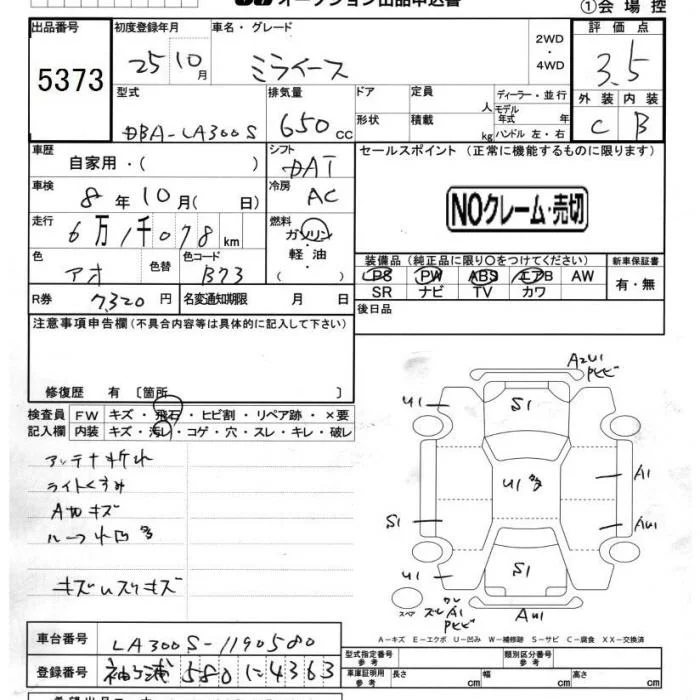 オークション出品申込書
①会場控
出品番号
5373
初度登録年月
25 10月
車名・グレード
ミライース
2WD
・
4WD
評価点
3.5
外装 内装
C B
型式
DBA-LA300S
排気量
650 cc
ドア
形状
定員 人
積載 kg
ディーラー・並行
モデル年式 年
ハンドル 左・右
車歴
自家用・( )
シフト
DAT
セールスポイント (正常に機能するものに限ります)
NOクレーム・売切
車検
8年10月( 日)
冷房
AC
走行
6万1千078km
燃料
ガソリン
軽油
( )
色
アオ
色替
色コード
B73
装備品 (純正品に限り○をつけてください)
PS PW ABS エアB AW
SR ナビ TV カワ
新車保証書
有・無
R券 7,320円
名変通知期限 月 日
後日品
注意事項申告欄(不具合内容等は具体的に記入して下さい)
修復歴 有 〔箇所 〕
検査員記入欄
FW キズ・飛石・ヒビ割・リペア跡・×要
内装 キズ・汚レ・コゲ・穴・スレ・キレ・破レ
アンテナオレ
ライトくすみ
Aカキズ
ルーフ小凹多
キズUスリキズ
A2U1
PヒビE
U1
S1
U1多
A1
S1
AU1
S1
U1
スペア
A1
AU1
A-キズ E-エクボ U-凹み W-補修跡 S-サビ C-腐食 XX-交換済
車台番号
LA300S-1190580
登録番号
袖ヶ浦580に4363
型式指定番号
参考
類別区分番号
参考
車庫証明用
参考
長さ cm 幅 cm 高さ cm